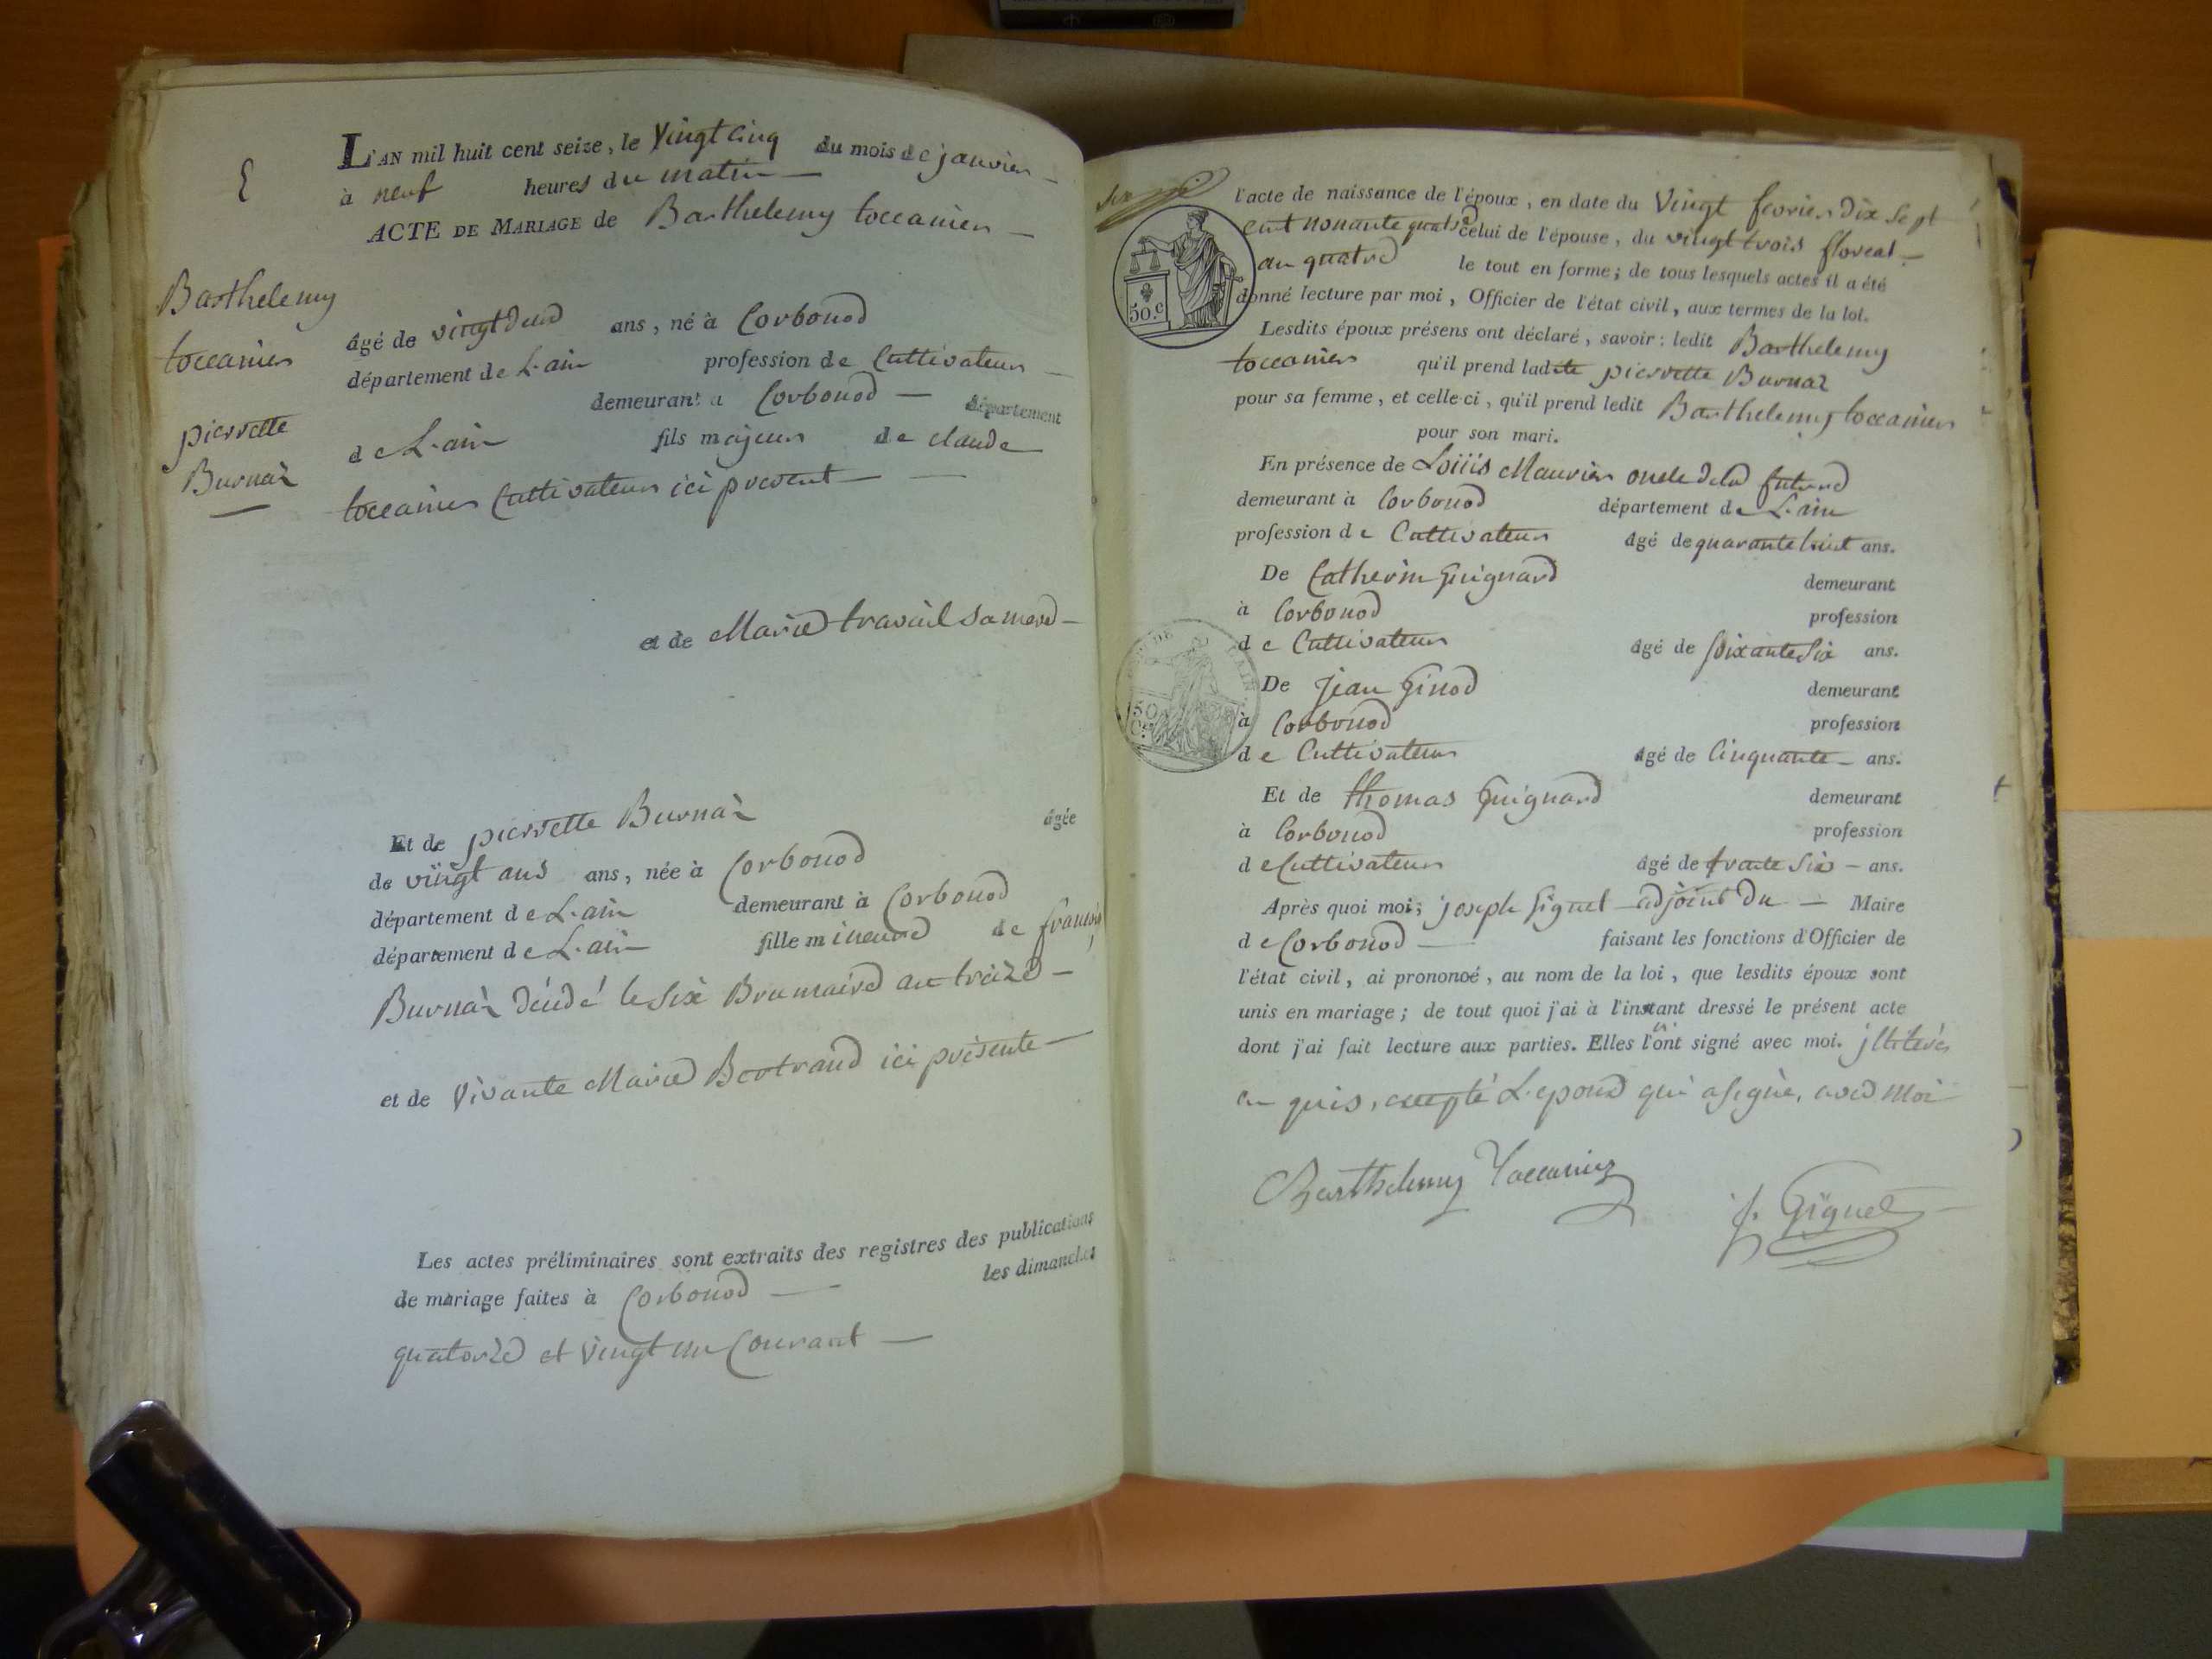 L'AN mil huit cent seize, le Vingt Cinq du mois de janvier
à neuf heures du matin
ACTE DE MARIAGE de Barthelemy toccanier
Barthelemy
toccanier
pierrette
Burnaz
âgé de vingt deux ans, né à Corbonod
département de L'ain profession de Cultivateur
demeurant a Corbonod département
de L'ain fils majeur de claude
toccanier Cultivateur ici present
et de Marie travail sa mere
Et de pierrette Burnaz âgée
de vingt ans ans, née à Corbonod
département de L'ain demeurant à Corbonod
département de L'ain fille mineure de francois
Burnaz décédé le six Brumaire an treize
et de Vivante Marie Bertrand ici présente
Les actes préliminaires sont extraits des registres des publications
de mariage faites à Corbonod les dimanches
quatorze et vingt un Courant
l'acte de naissance de l'époux, en date du Vingt fevrier Dix Sept
cent nonante quatre celui de l'épouse, du vingt trois floreal
an quatre le tout en forme; de tous lesquels actes il a été
50.c
donné lecture par moi, Officier de l'état civil, aux termes de la loi.
Lesdits époux présens ont déclaré, savoir: ledit Barthelemy
toccanier qu'il prend ladite pierrette Burnaz
pour sa femme, et celle-ci, qu'il prend ledit Barthelemy toccanier
pour son mari.
En présence de Loüis Maurier oncle de la future
demeurant à Corbonod département de L'ain
profession de Cultivateur âgé de quarante huit ans.
De Catherin Guignard demeurant
à Corbonod profession
de Cultivateur âgé de soixante six ans.
De Jean Ginod demeurant
à Corbonod profession
de Cultivateur âgé de Cinquante ans.
Et de thomas Guignard demeurant
à Corbonod profession
de Cultivateur âgé de trente six ans.
Après quoi moi, joseph Giguet adjoint du Maire
de Corbonod faisant les fonctions d'Officier de
l'état civil, ai prononcé, au nom de la loi, que lesdits époux sont
unis en mariage; de tout quoi j'ai à l'instant dressé le présent acte
dont j'ai fait lecture aux parties. Elles l'ont signé avec moi. illiterés
en quis, excepté L'epoux qui a signé, avec moi
Barthelemy Toccanier
J. Giguet